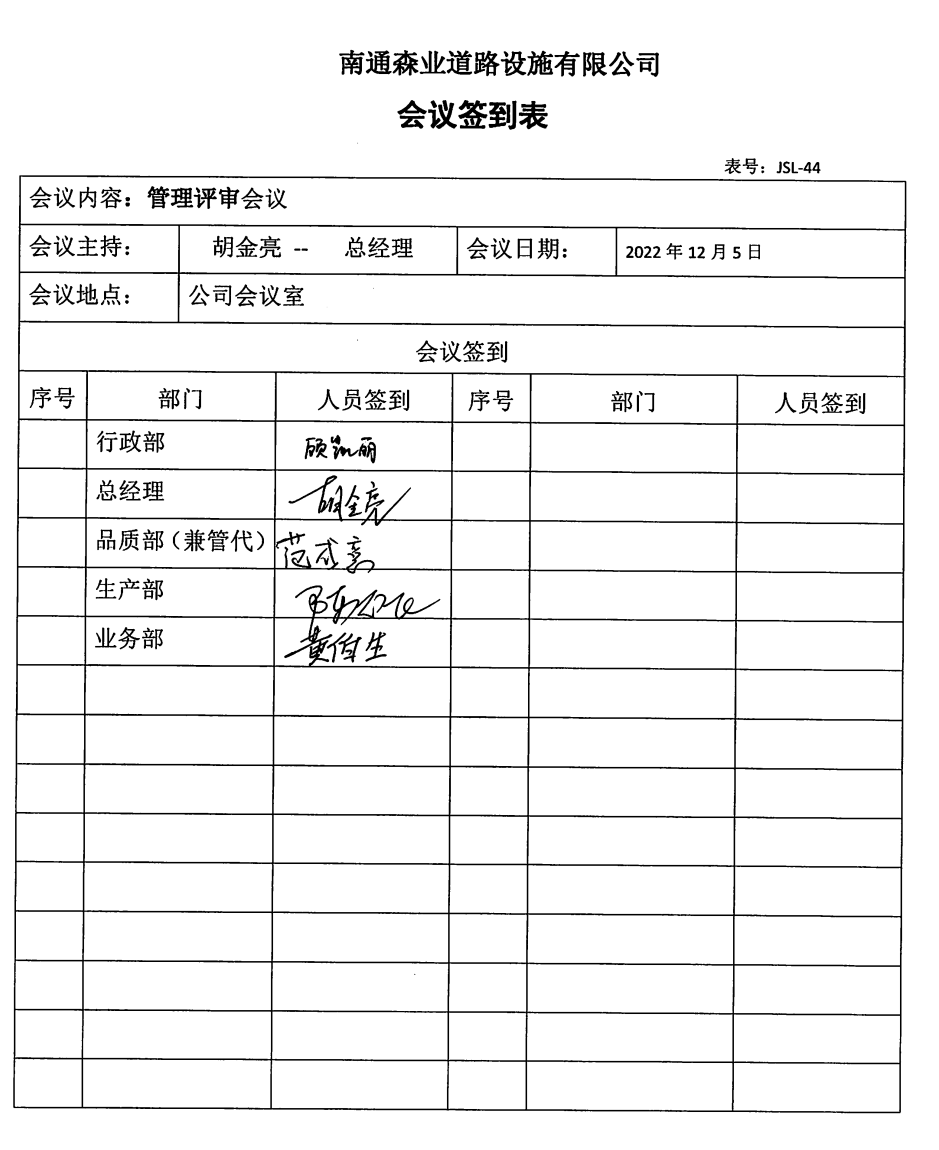 南通森业道路设施有限公司
会议签到表
表号：JSL-44
会议内容：管理评审会议
会议主持： 胡金亮 -- 总经理 会议日期： 2022 年 12 月 5 日
会议地点： 公司会议室
会议签到
序号 部门 人员签到 序号 部门 人员签到
行政部 顾凯丽
总经理 胡金亮
品质部（兼管代） 范成意
生产部
业务部 黄伟生